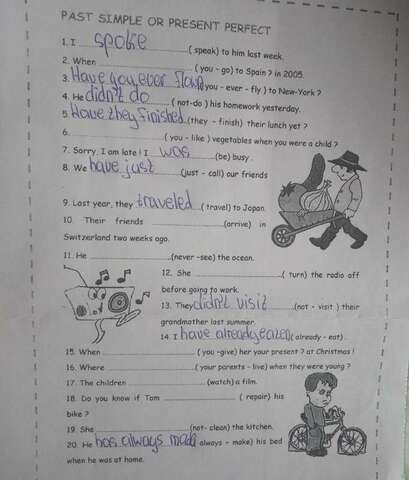 PAST SIMPLE OR PRESENT PERFECT
1. I spoke ( speak) to him last week.
2. When ( you - go) to Spain ? in 2005.
3. Have you ever flown (you - ever - fly ) to New-York ?
4. He didn't do ( not-do ) his homework yesterday.
5. Have they finished (they - finish) their lunch yet ?
6. ( you - like ) vegetables when you were a child ?
7. Sorry, I am late ! I was (be) busy .
8. We have just (just - call) our friends
9. Last year, they traveled ( travel) to Japan.
10. Their friends (arrive) in
Switzerland two weeks ago.
11. He (never -see) the ocean.
12. She ( turn) the radio off
before going to work.
13. They didn't visit (not - visit ) their
grandmother last summer.
14. I have already eaten ( already - eat) .
15. When ( you -give) her your present ? at Christmas !
16. Where ( your parents - live) when they were young ?
17. The children (watch) a film.
18. Do you know if Tom ( repair) his
bike ?
19. She (not- clean) the kitchen.
20. He has always made always - make) his bed
when he was at home.